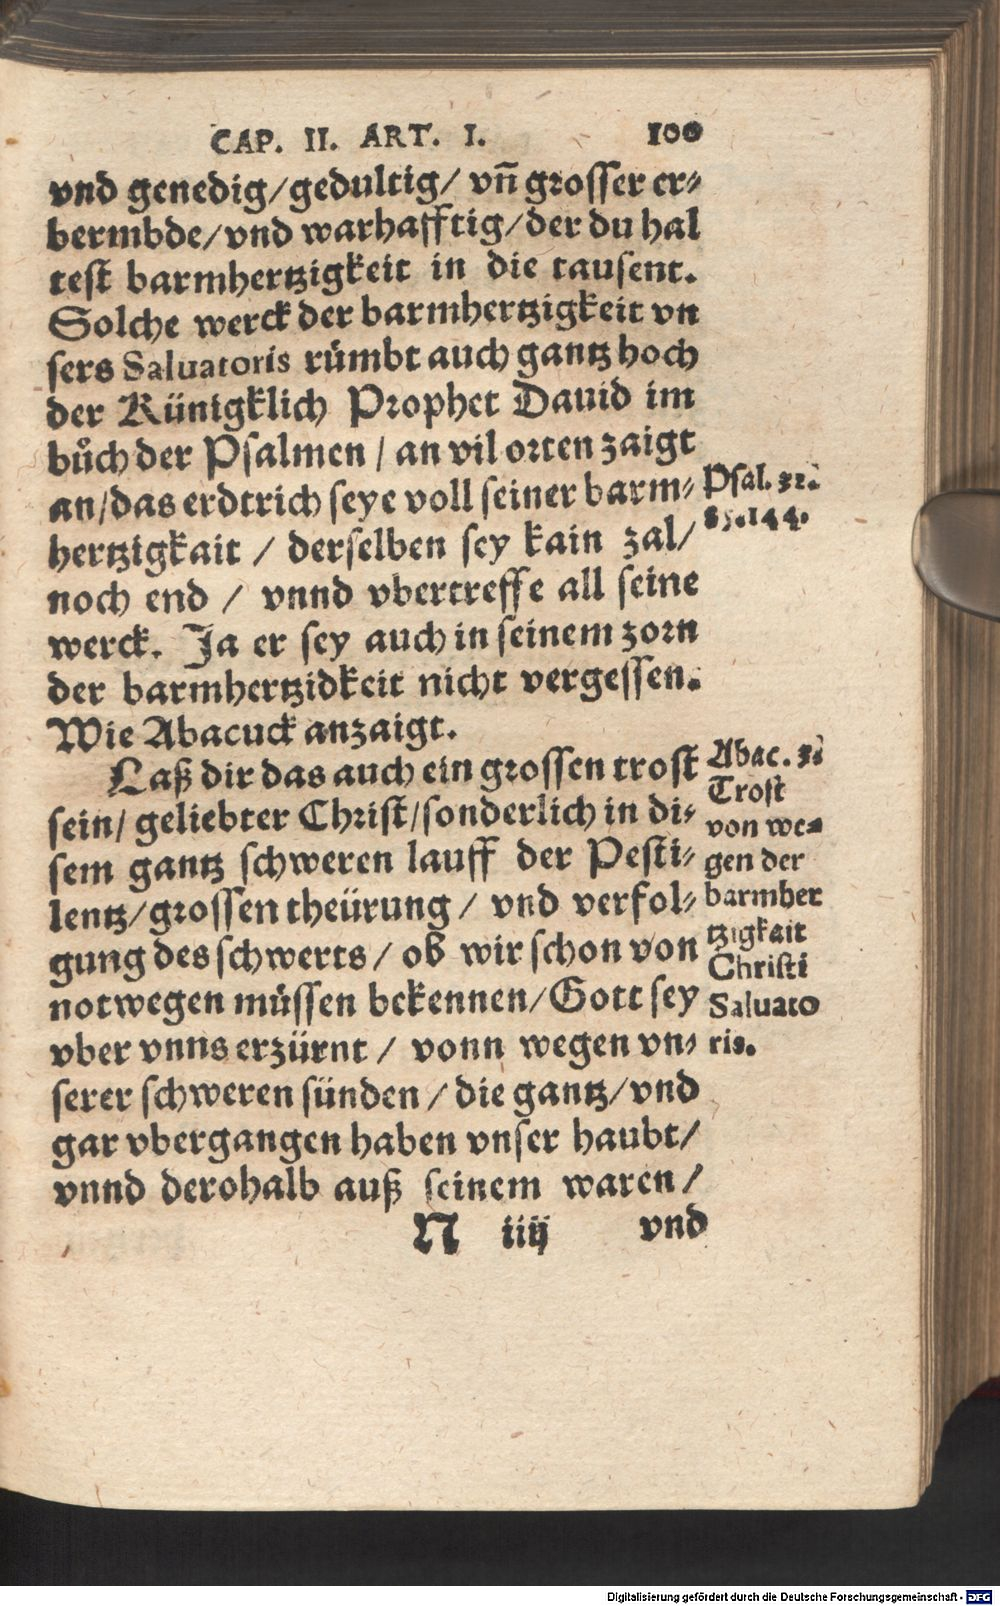 CAP. II. ART. I. 100
vnd genedig/gedultig/ vñ grosser er⸗
bermbde/vnd warhafftig/der du hal
test barmhertzigkeit in die tausent.
Solche werck der barmhertzigkeit vn
sers Saluatoris rümbt auch gantz hoch
der Künigklich Prophet Dauid im
bůch der Psalmen / an vil orten zaigt
an/das erdtrich seye voll seiner barm⸗
hertzigkait / derselben sey kain zal/
noch end / vnnd vbertreffe all seine
werck. Ja er sey auch in seinem zorn
der barmhertzidkeit nicht vergessen.
Wie Abacuck anzaigt.
Laß dir das auch ein grossen trost
sein/ geliebter Christ/sonderlich in di⸗
sem gantz schweren lauff der Pesti⸗
lentz/grossen theürung / vnd verfol⸗
gung des schwerts / ob wir schon von
not wegen müssen bekennen/Gott sey
vber vnns erzürnt / vonn wegen vn⸗
serer schweren sünden / die gantz/vnd
gar vbergangen haben vnser haubt/
vnnd derohalb auß seinem waren /
N iiij vnd
Psal. 32.
144.
Abac.
Trost
von we⸗
gen der
barmher
tzigkait
Christi
Saluato
ris.
Digitalisierung gefördert durch die Deutsche Forschungsgemeinschaft - DFG